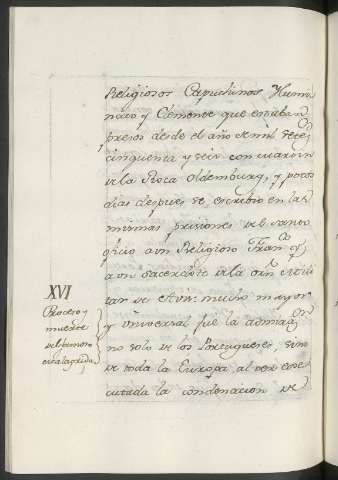 Religiosos Capuchinos Illumi
nato y Clemente que estaban
presos desde el año de mil sete
cinquenta y seis con
de la Roca Oldemburg, y pocos
dias despues se en las
mismas prisiones del santo
oficio a un Religioso Franco y
a un sacerdote de la Orn Mili
tar de mucho mayor
y universal fue la admiraon
no solo de los Portugueses, sino
de toda la Europa, al ver exe
cutada la condenacion de
XVI
Proceso y
muerte
del famoso
Malagrida